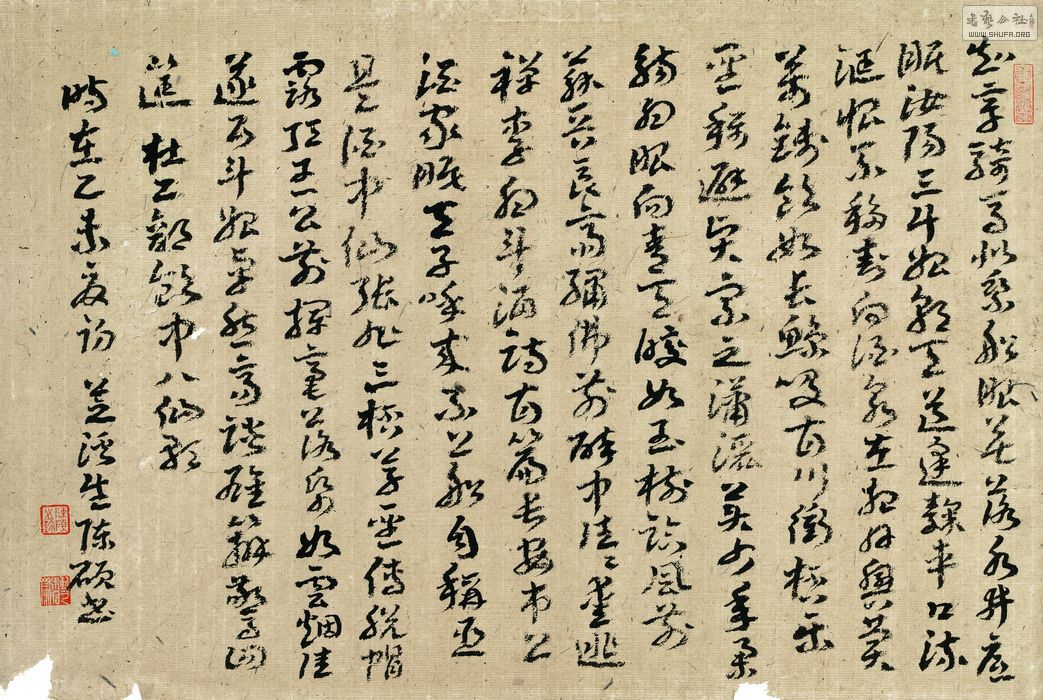 書藝公社
WWW.SHUFA.ORG
知章騎馬似乘船眼花落水井底
眠汝陽三斗始朝天道逢麴車口流
涎恨不移封向酒泉左相日興費
萬錢飲如長鯨吸百川銜杯樂
聖稱避賢宗之瀟灑美少年舉
觴白眼向青天皎如玉樹臨風前
蘇晉長齋繡佛前醉中往往愛逃
禪李白斗酒詩百篇長安市上
酒家眠天子呼來不上船自稱臣
是酒中仙張旭三杯草聖傳脫帽
露頂王公前揮毫落紙如雲烟焦
遂五斗始卓然高談雄辯驚四
筵 杜工部飲中八仙歌
時在乙未夏初 芝溪生陳碩書